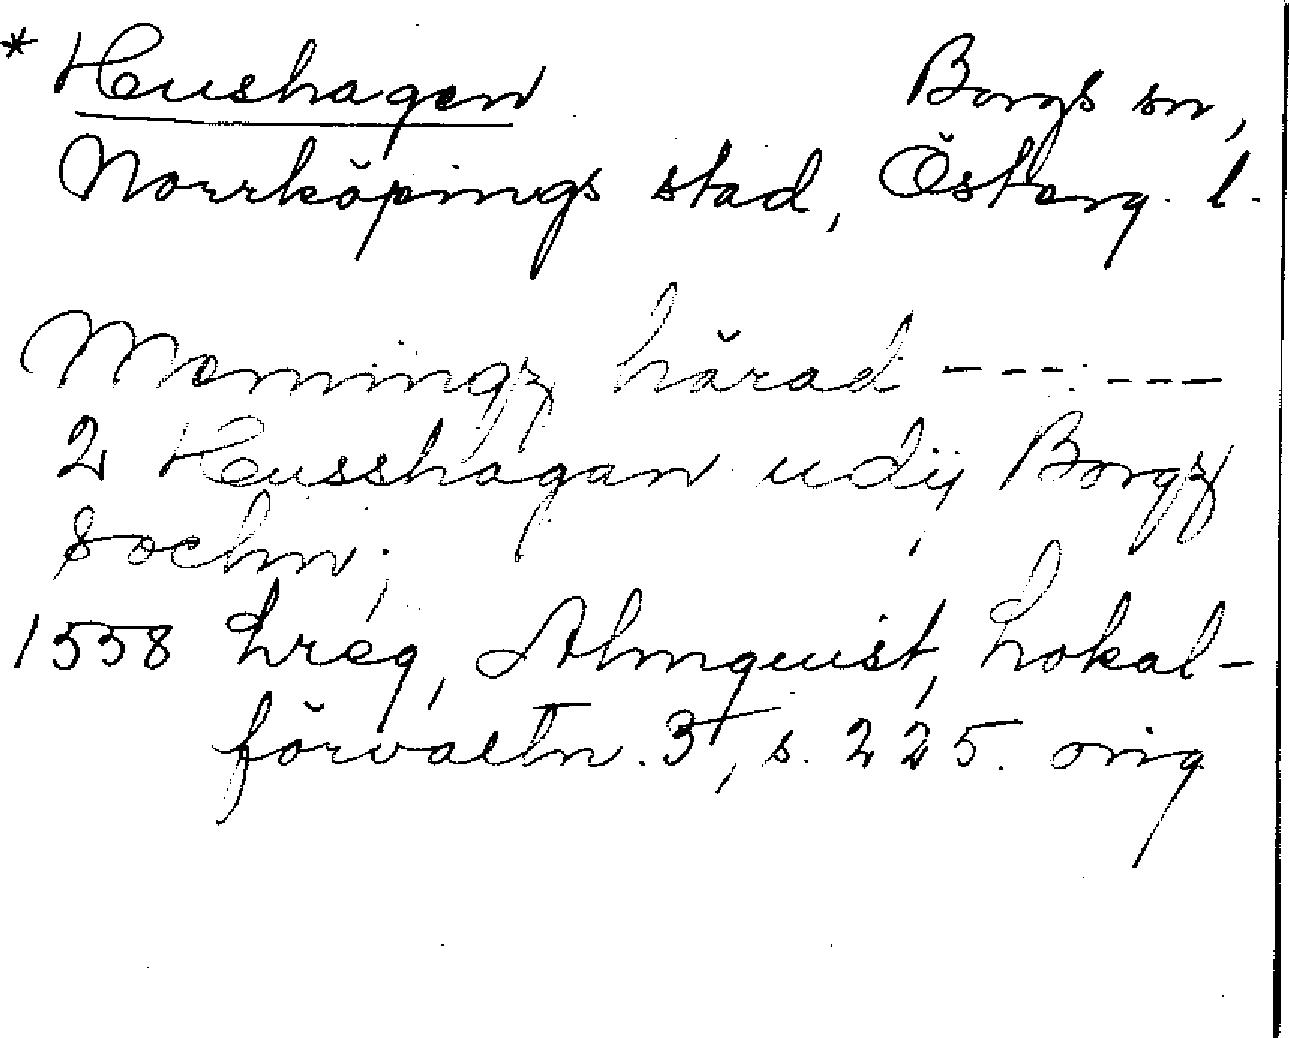 * Hushagen Borgs sn,
Norrköpings stad, Österg. l.
Memmingz härad --- ---
2 Husshagan udij Borgz
Sochn;
1558 Lreg, Almquist, Lokal-
förvaltn. 3, s. 225. orig